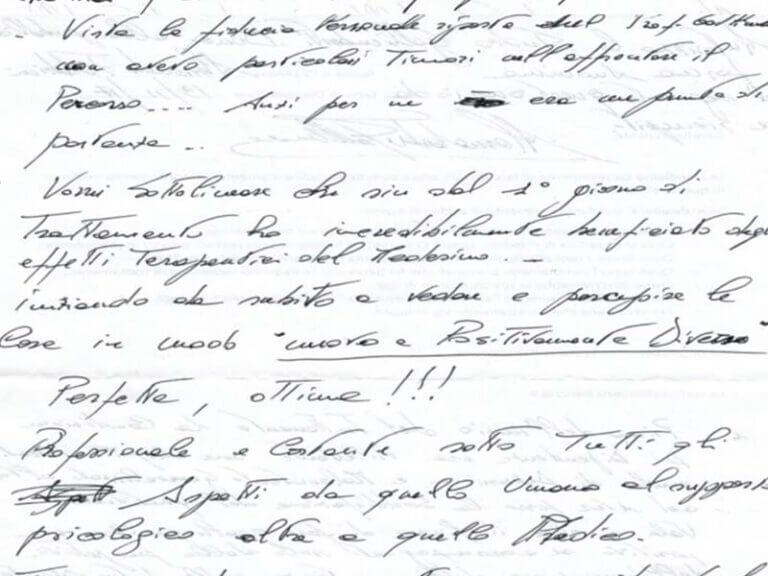 - Vista la fiducia Personale riposta nel Prof.
non avevo particolari Timori nell'affrontare il
Percorso.... Anzi per me era un punto di
partenza...
Vorrei Sottolineare che sin dal 1° giorno di
Trattamento ho incredibilmente beneficiato degli
effetti Terapeutici del Medesimo -
iniziando da subito a vedere e percepire le
Cose in modo "nuovo e Positivamente Diverso"
Perfetta, ottima!!!
Professionale e Costante sotto Tutti gli
Aspetti da quello Umano al supporto
psicologico oltre a quello Medico.